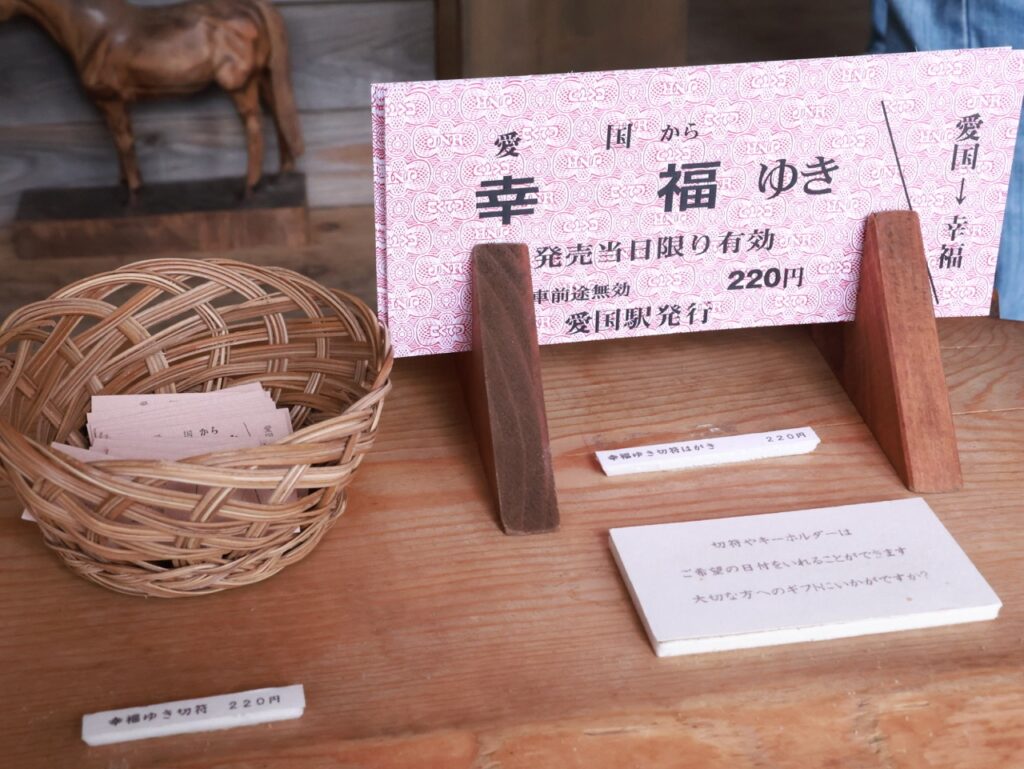 愛国から
幸福ゆき
発売当日限り有効
車前途無効 220円
愛国駅発行
愛国→幸福
国から
愛国
幸福ゆき切符はがき 220円
切符やキーホルダーは
ご希望の日付をいれることができます
大切な方へのギフトにいかがですか?
幸福ゆき切符 220円